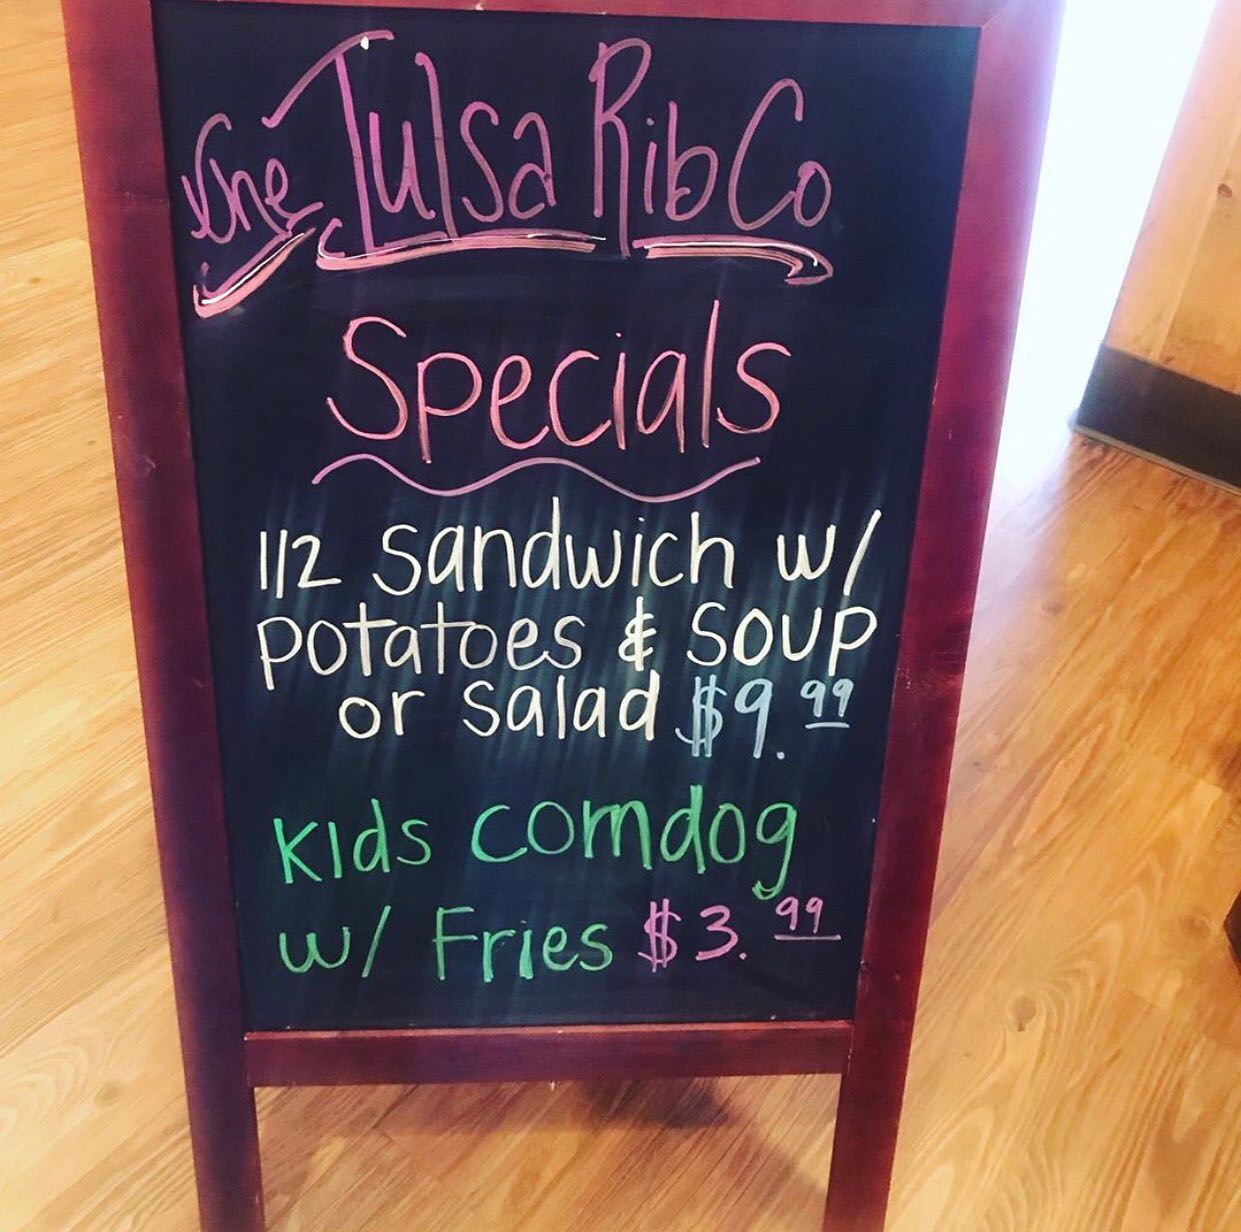 the Tulsa Rib Co
Specials
1/2 sandwich w/
potatoes & soup
or salad $9.99
Kids corndog
w/ Fries $3.99